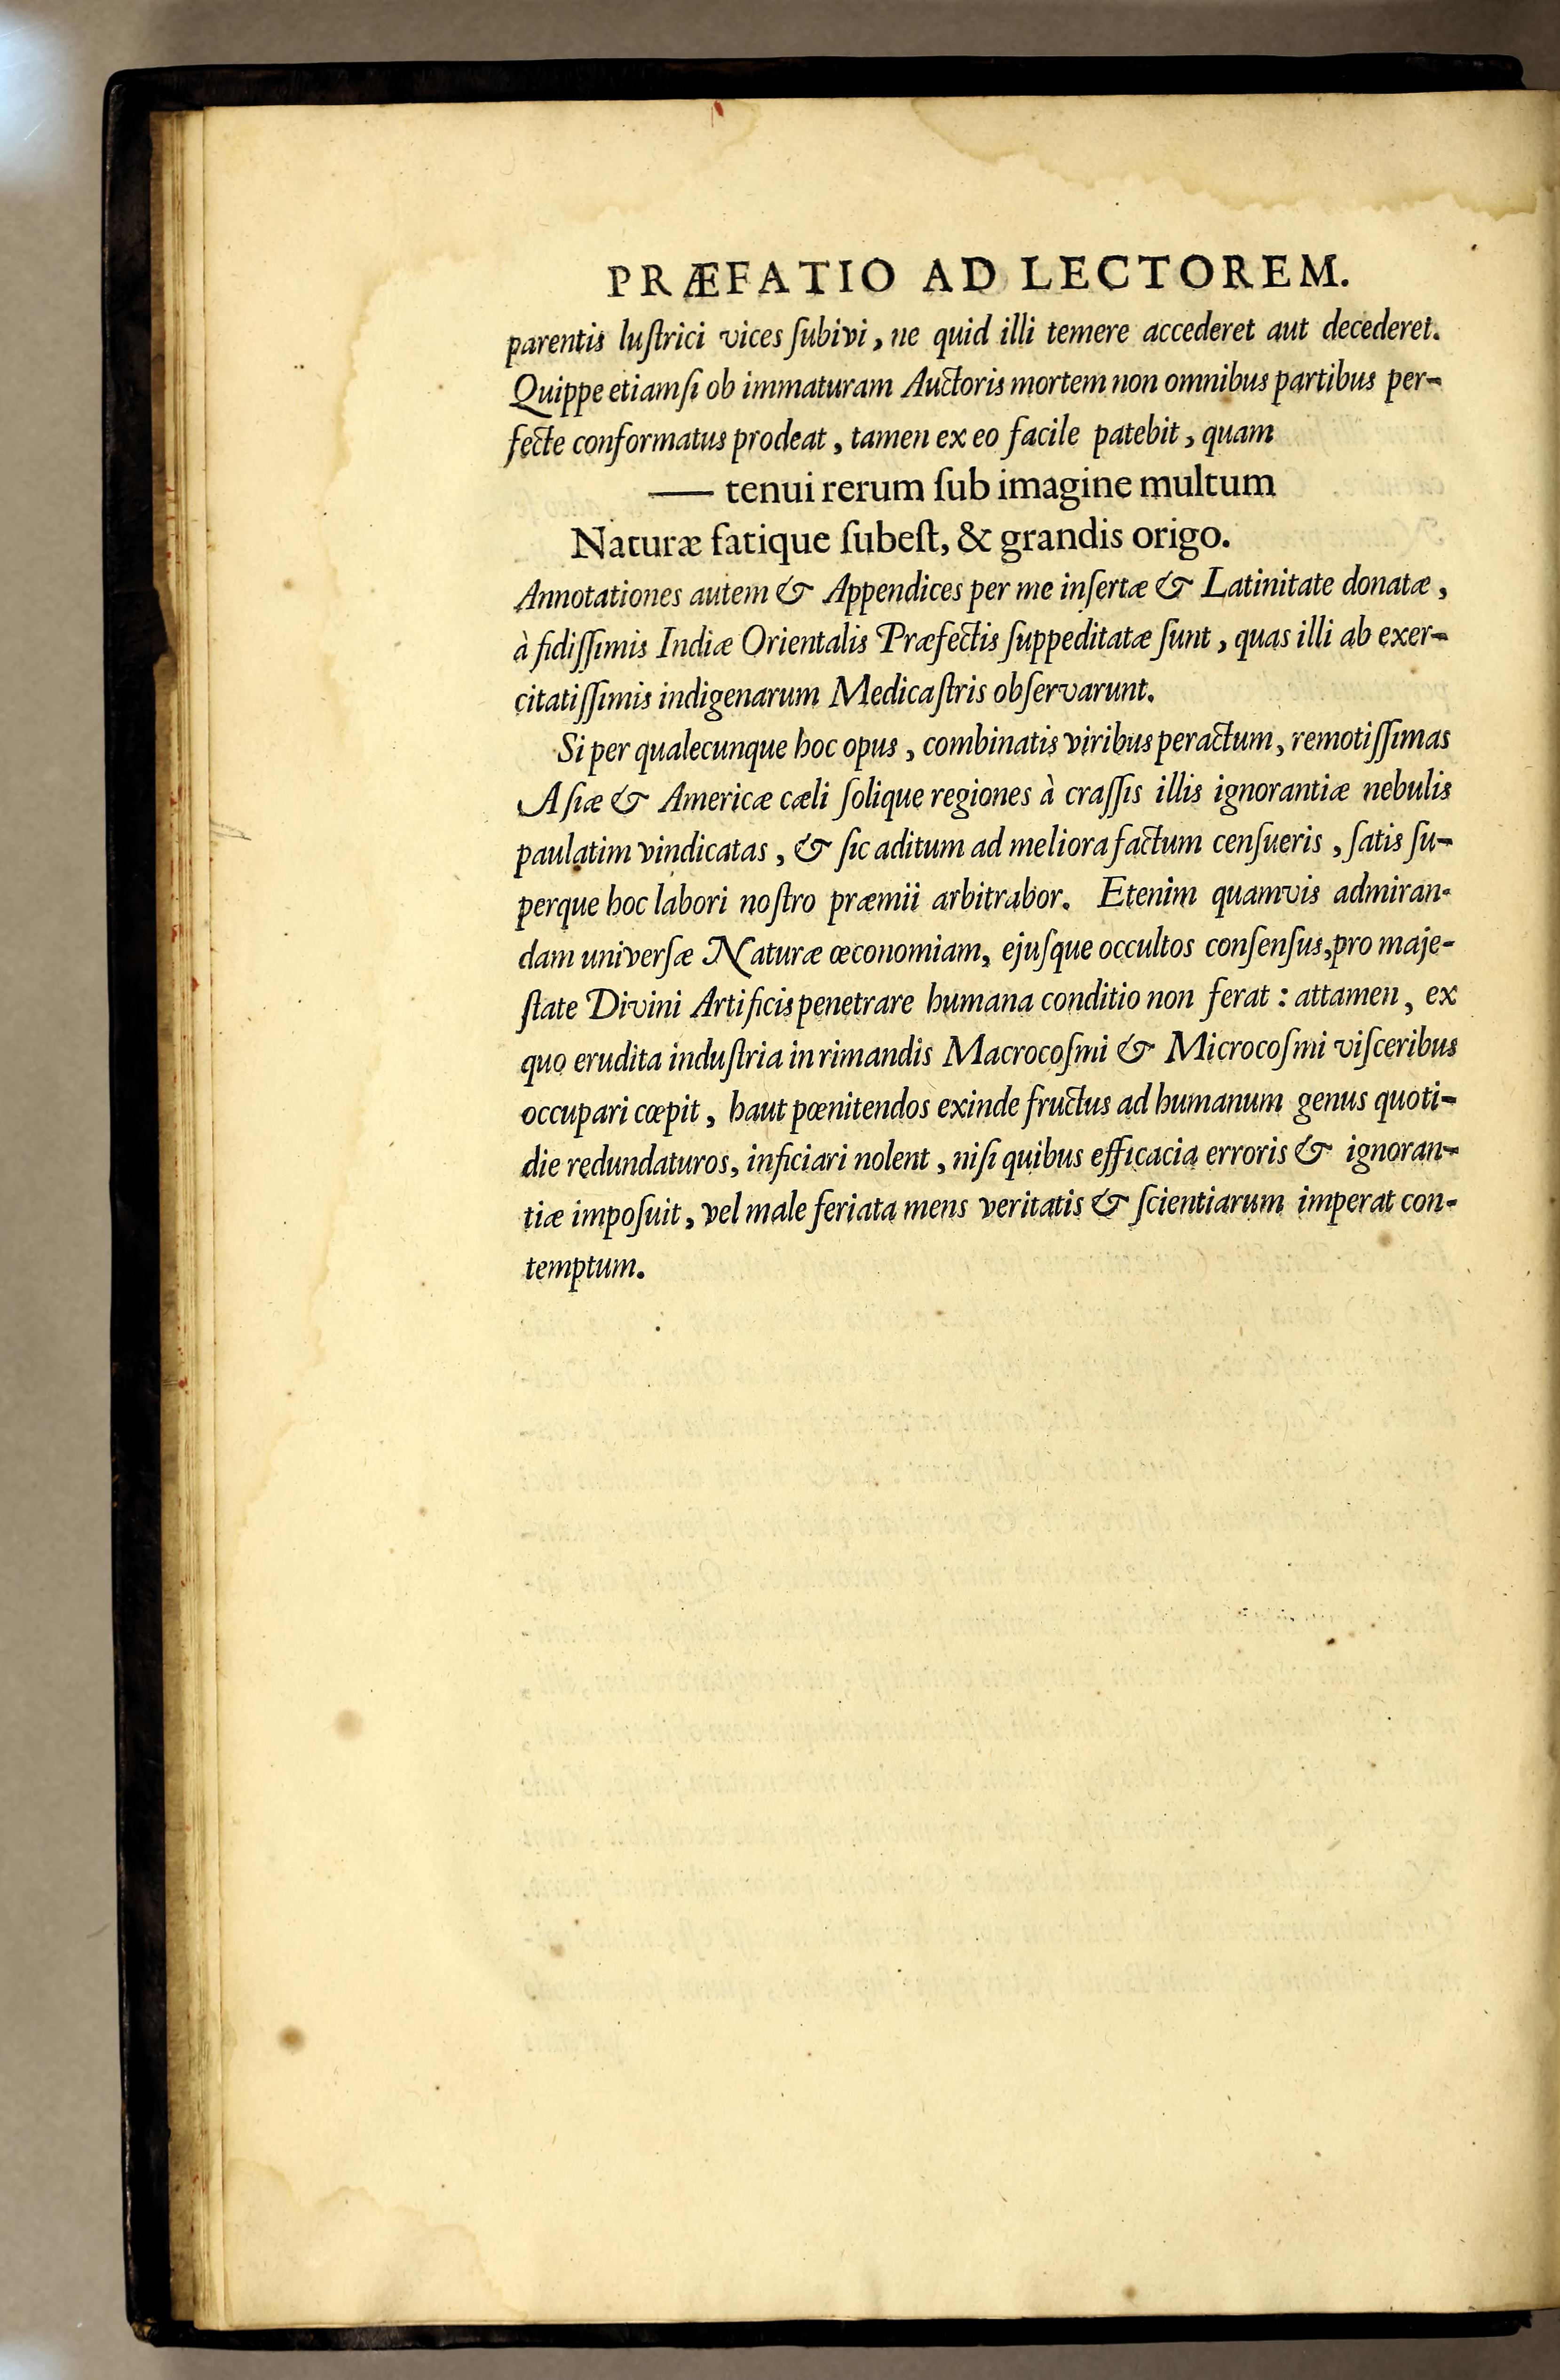 PRÆFATIO AD LECTOREM.
parentis luſtrici vices ſubivi, ne quid illi temere accederet aut decederet.
Quippe etiamſi ob immaturam Auctoris mortem non omnibus partibus per-
fecte conformatus prodeat, tamen ex eo facile patebit, quam
— tenui rerum ſub imagine multum
Naturæ fatique ſubeſt, & grandis origo.
Annotationes autem & Appendices per me inſertæ & Latinitate donatæ,
à fidiſſimis Indiæ Orientalis Præfectis ſuppeditatæ ſunt, quas illi ab exer-
citatiſſimis indigenarum Medicaſtris obſervarunt.
Si per qualecunque hoc opus, combinatis viribus peractum, remotiſſimas
Aſiæ & Americæ cæli ſolique regiones à craſſis illis ignorantiæ nebulis
paulatim vindicatas, & ſic aditum ad meliora factum cenſueris, ſatis ſu-
perque hoc labori noſtro præmii arbitrabor. Etenim quamvis admiran-
dam univerſæ Naturæ œconomiam, ejuſque occultos conſenſus, pro maje-
ſtate Divini Artificis penetrare humana conditio non ferat: attamen, ex
quo erudita induſtria in rimandis Macrocoſmi & Microcoſmi viſceribus
occupari cœpit, haut pœnitendos exinde fructus ad humanum genus quoti-
die redundaturos, inficiari nolent, niſi quibus efficacia erroris & ignoran-
tiæ impoſuit, vel male feriata mens veritatis & ſcientiarum imperat con-
temptum.